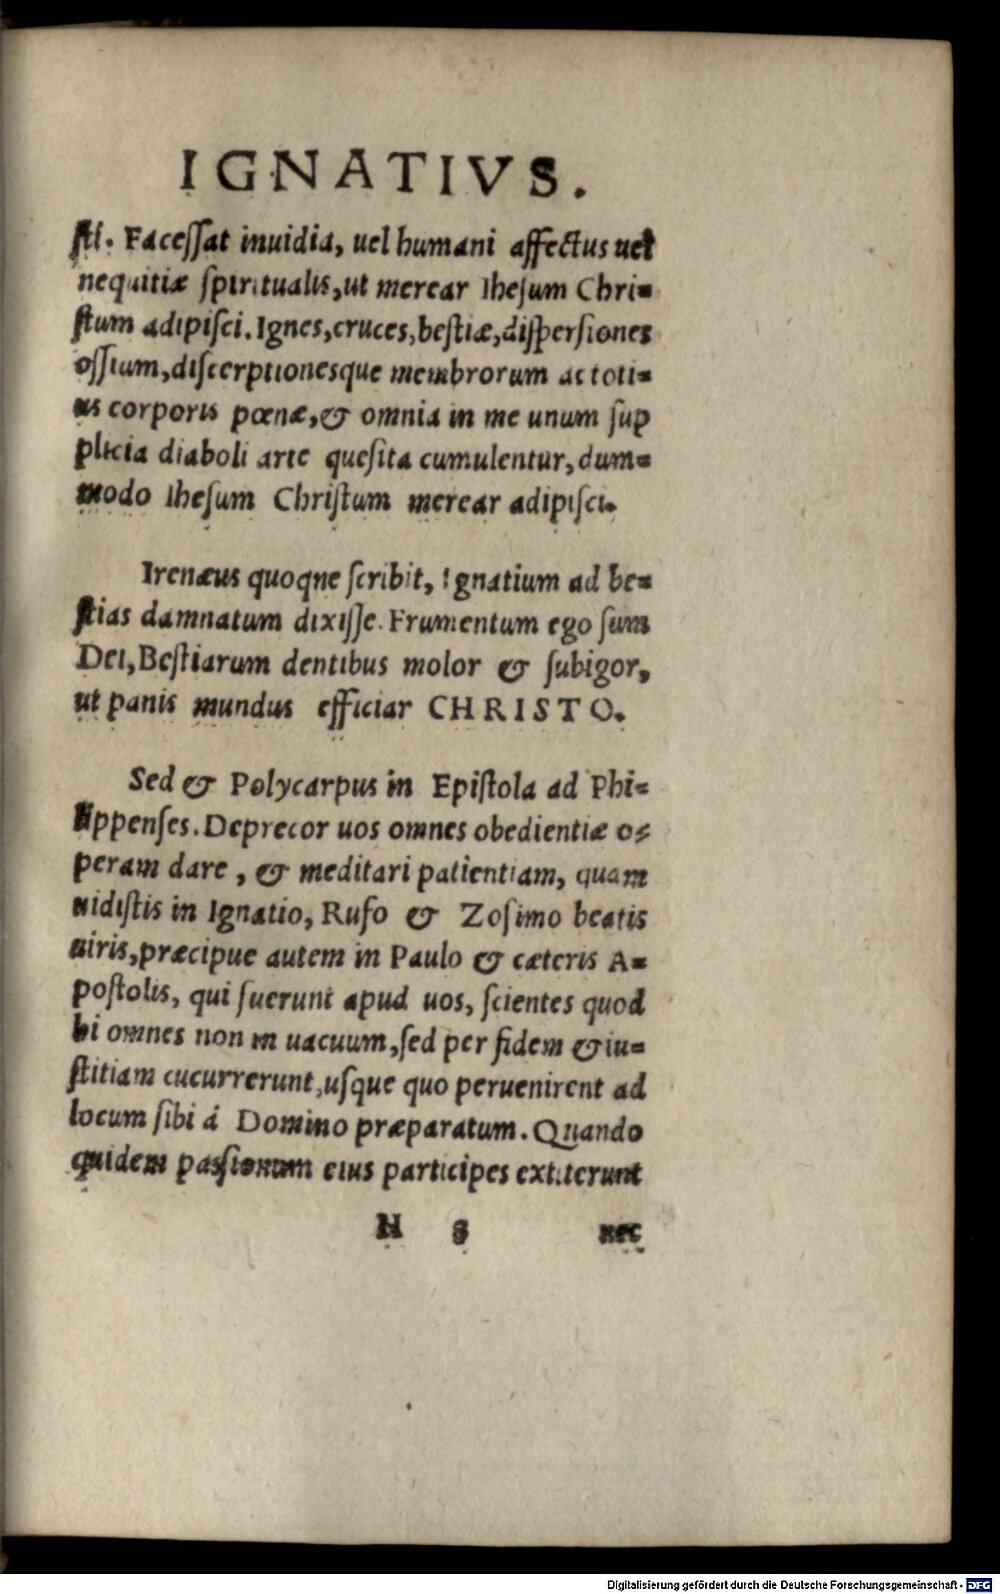 IGNATIVS.
sti. Facessat inuidia, uel humani affectus uel
nequitiæ spiritualis, ut merear Ihesum Chri=
stum adipisci. Ignes, cruces, bestiæ, dispersiones
ossium, discerptionesque membrorum ac toti=
us corporis pœnæ, & omnia in me unum sup
plicia diaboli arte quesita cumulentur, dum=
modo Ihesum Christum merear adipisci.
Irenæus quoqne scribit, Ignatium ad be=
stias damnatum dixisse. Frumentum ego sum
Dei, Bestiarum dentibus molor & subigor,
ut panis mundus efficiar CHRISTO.
Sed & Polycarpus in Epistola ad Phi=
lippenses. Deprecor uos omnes obedientiæ o=
peram dare, & meditari patientiam, quam
uidistis in Ignatio, Rufo & Zosimo beatis
uiris, præcipue autem in Paulo & cæteris A=
postolis, qui fuerunt apud uos, scientes quod
hi omnes non in uacuum, sed per fidem & iu=
stitiam cucurrerunt, usque quo peruenirent ad
locum sibi á Domino præparatum. Quando
quidem passionum eius participes extiterunt
N 8 nec
Digitalisierung gefördert durch die Deutsche Forschungsgemeinschaft - DFG